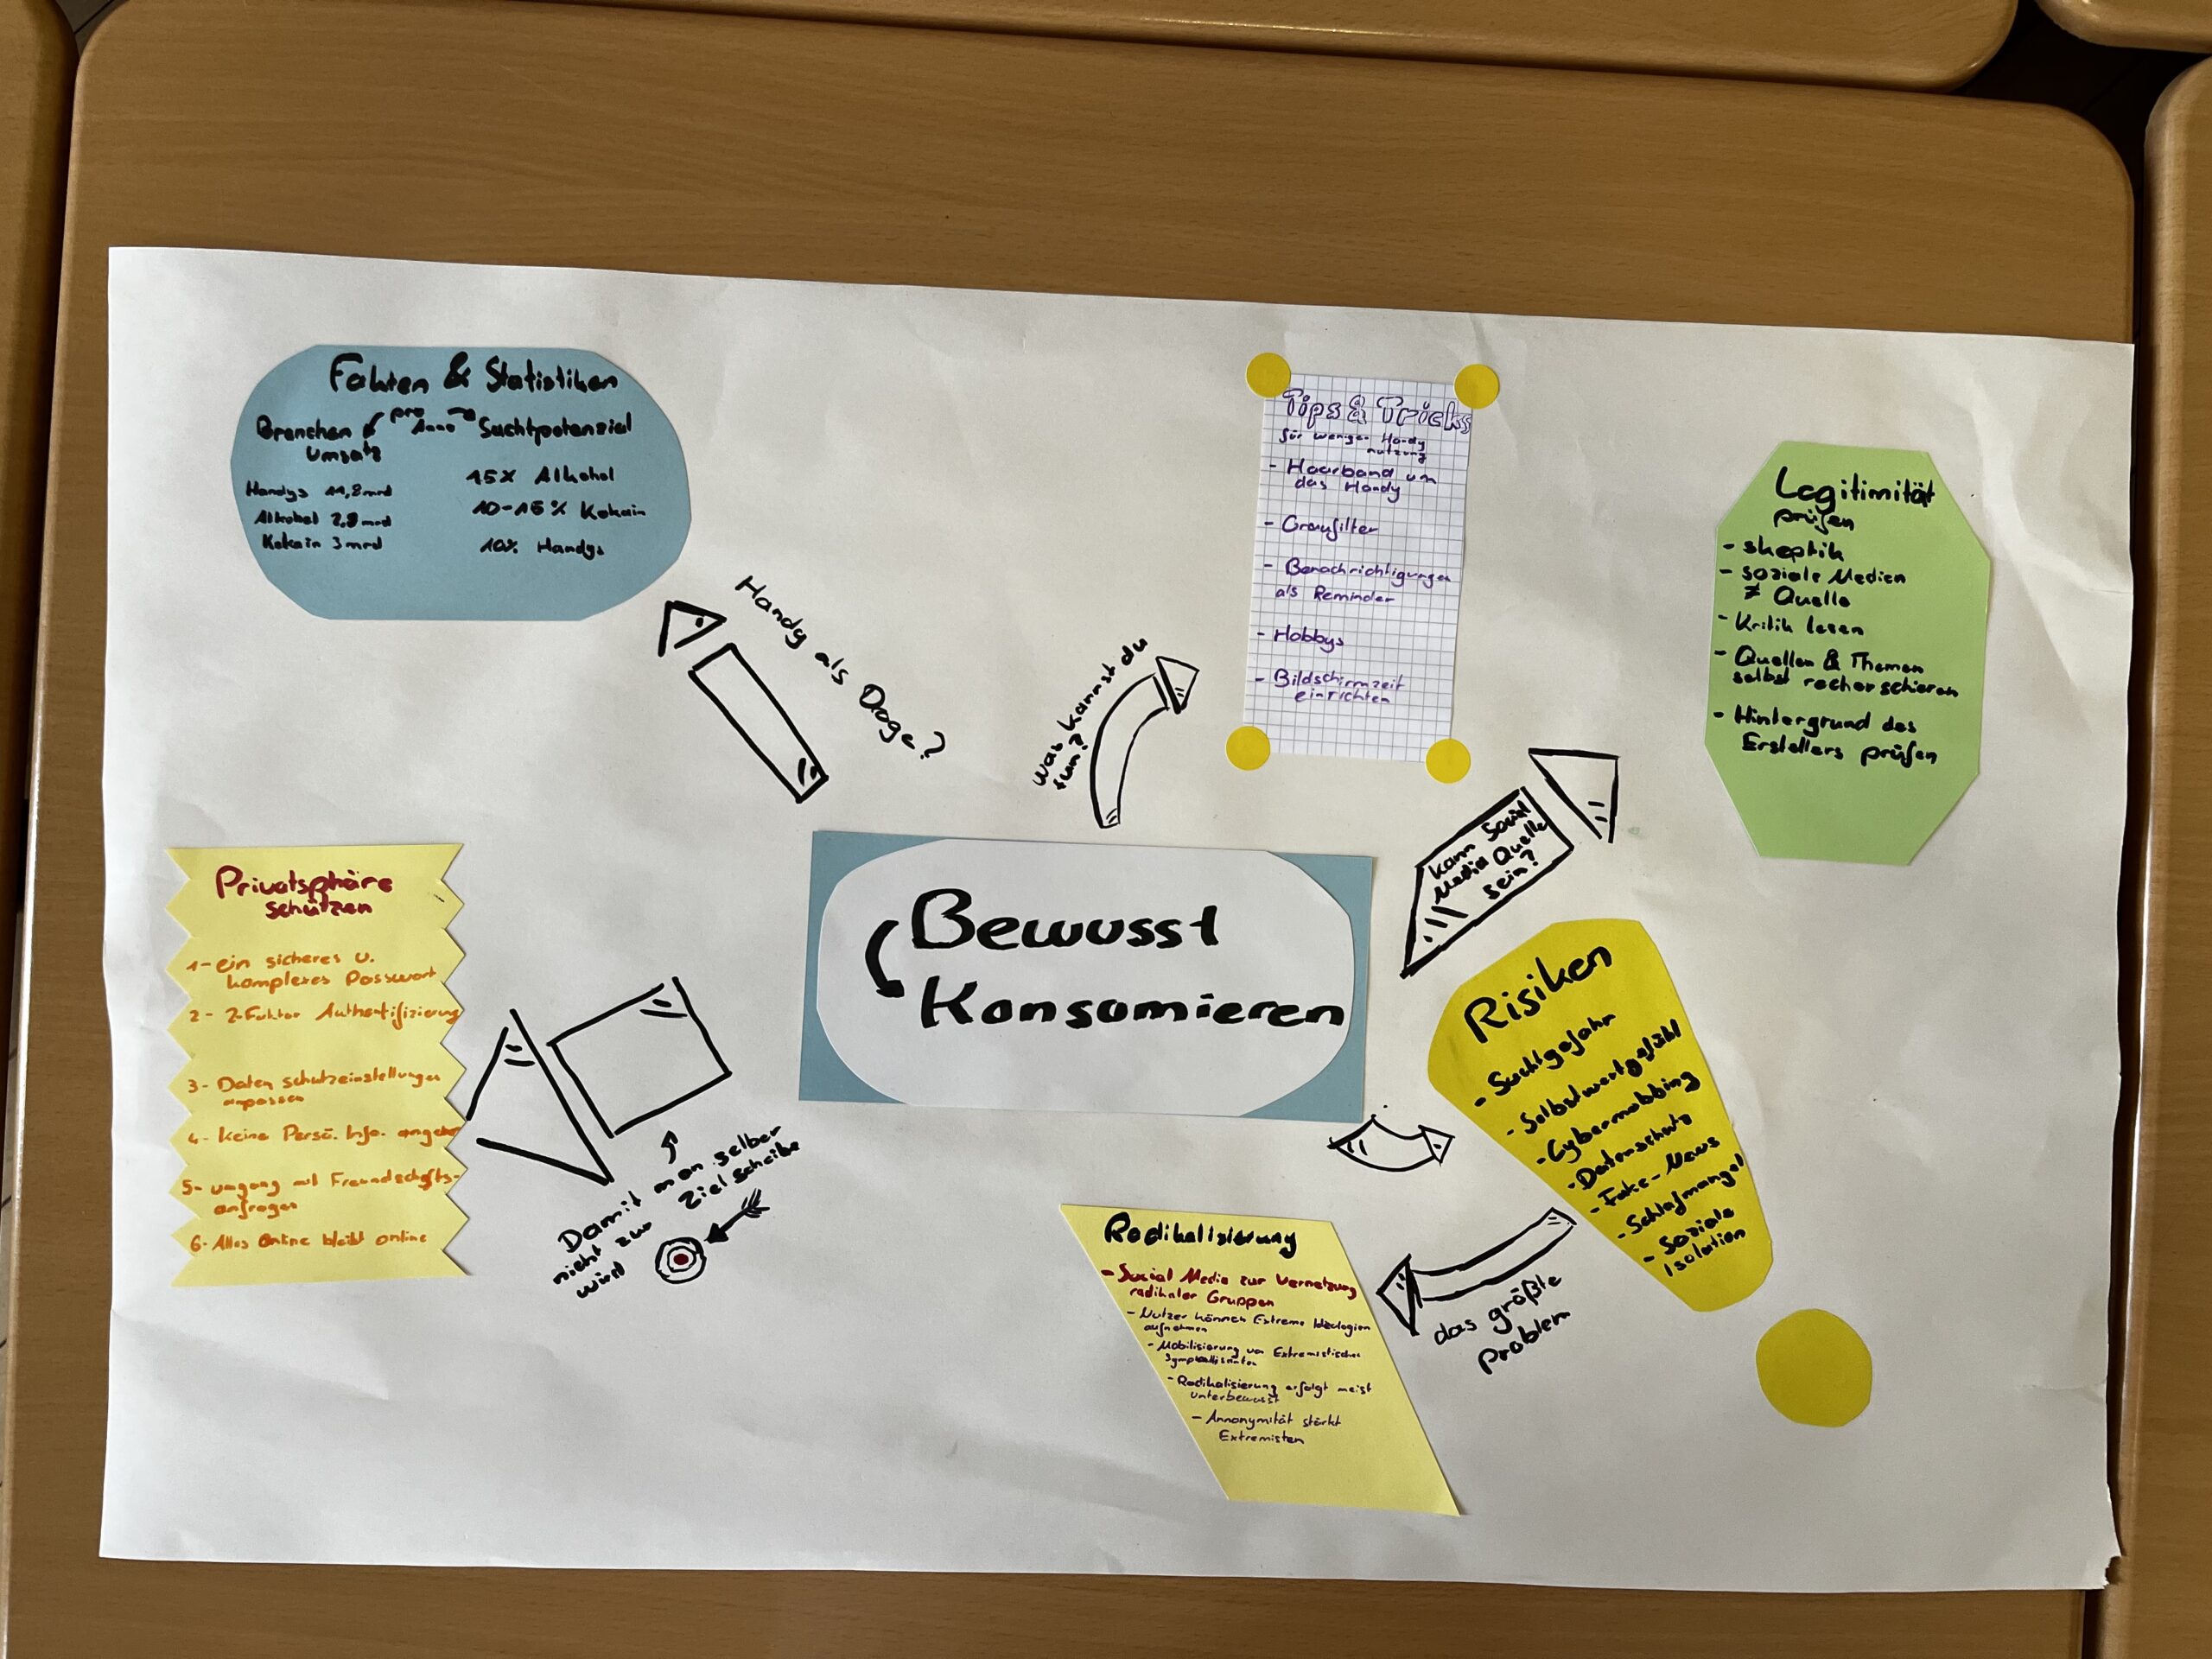 Fakten & Statistiken
Branchen
Umsatz
pro
Anno
Suchtpotenzial
Handys 11,8 mrd
Alkohol 2,8 mrd
Kokain 3 mrd
15X Alkohol
10-15% Kokain
10% Handys
Handy als Droge?
was kannst du
tun?
Tips & Tricks
für weniger Handy
nutzung
- Haarband um
das Handy
- Graufilter
- Benachrichtigungen
als Reminder
- Hobbys
- Bildschirmzeit
einrichten
Legitimität
prüfen
- skeptik
- soziale Medien
≠ Quelle
- Kritik lesen
- Quellen & Themen
selbst recherschieren
- Hintergrund des
Erstellers prüfen
kann Social
Media Quelle
sein?
Bewusst
Konsumieren
Privatsphäre
schützen
1- ein sicheres u.
komplexes Passwort
2- 2-Faktor Authentifizierung
3- Daten schutzeinstellungen
anpassen
4- keine Persö. Info. angeben
5- umgang mit Freundschafts-
anfragen
6- Alles Online bleibt online
Damit man selber
nicht zur Zielscheibe
wird
Risiken
- Suchtgefahr
- Selbstwertgefühl
- Cybermobbing
- Datenschutz
- Fake-News
- Schlafmangel
- Soziale
Isolation
das größte
Problem
Radikalisierung
- Social Media zur Vernetzung
radikaler Gruppen
- Nutzer können Extreme Ideologien
aufnehmen
- Mobilisierung von Extremistischen
- Radikalisierung erfolgt meist
unterbewusst
- Annonymität stärkt
Extremisten